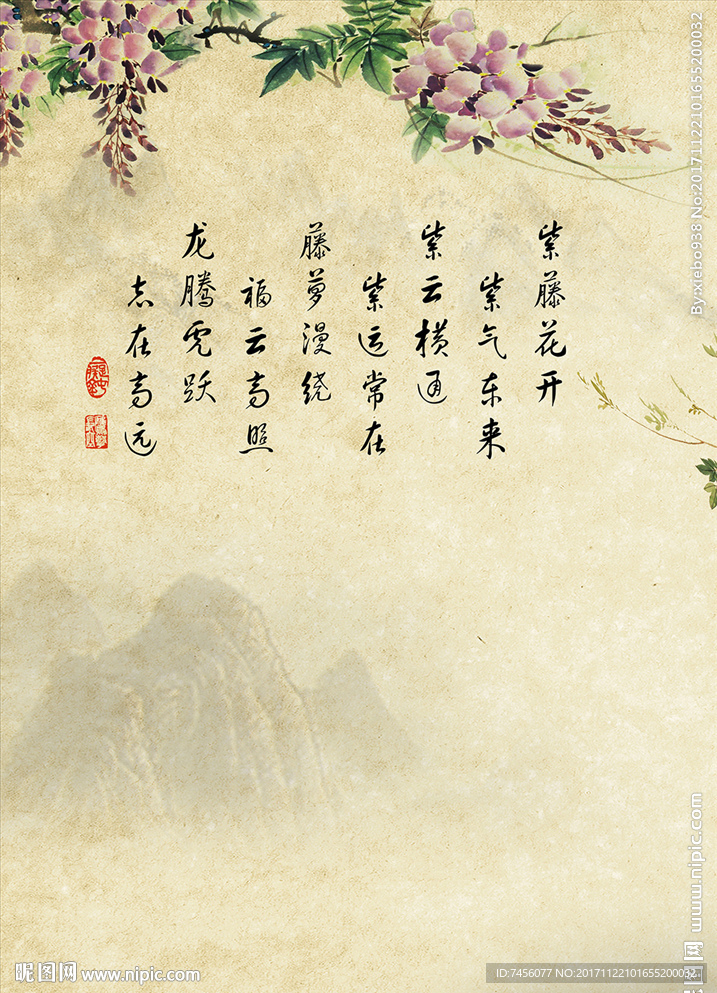 紫藤花开
紫气东来
紫云横通
紫运常在
藤萝漫绕
福云高照
龙腾虎跃
志在高远
By:xiebo938 No:20171122101655200032
www.nipic.com
昵图网 www.nipic.com
ID:7456077 NO:20171122101655200032